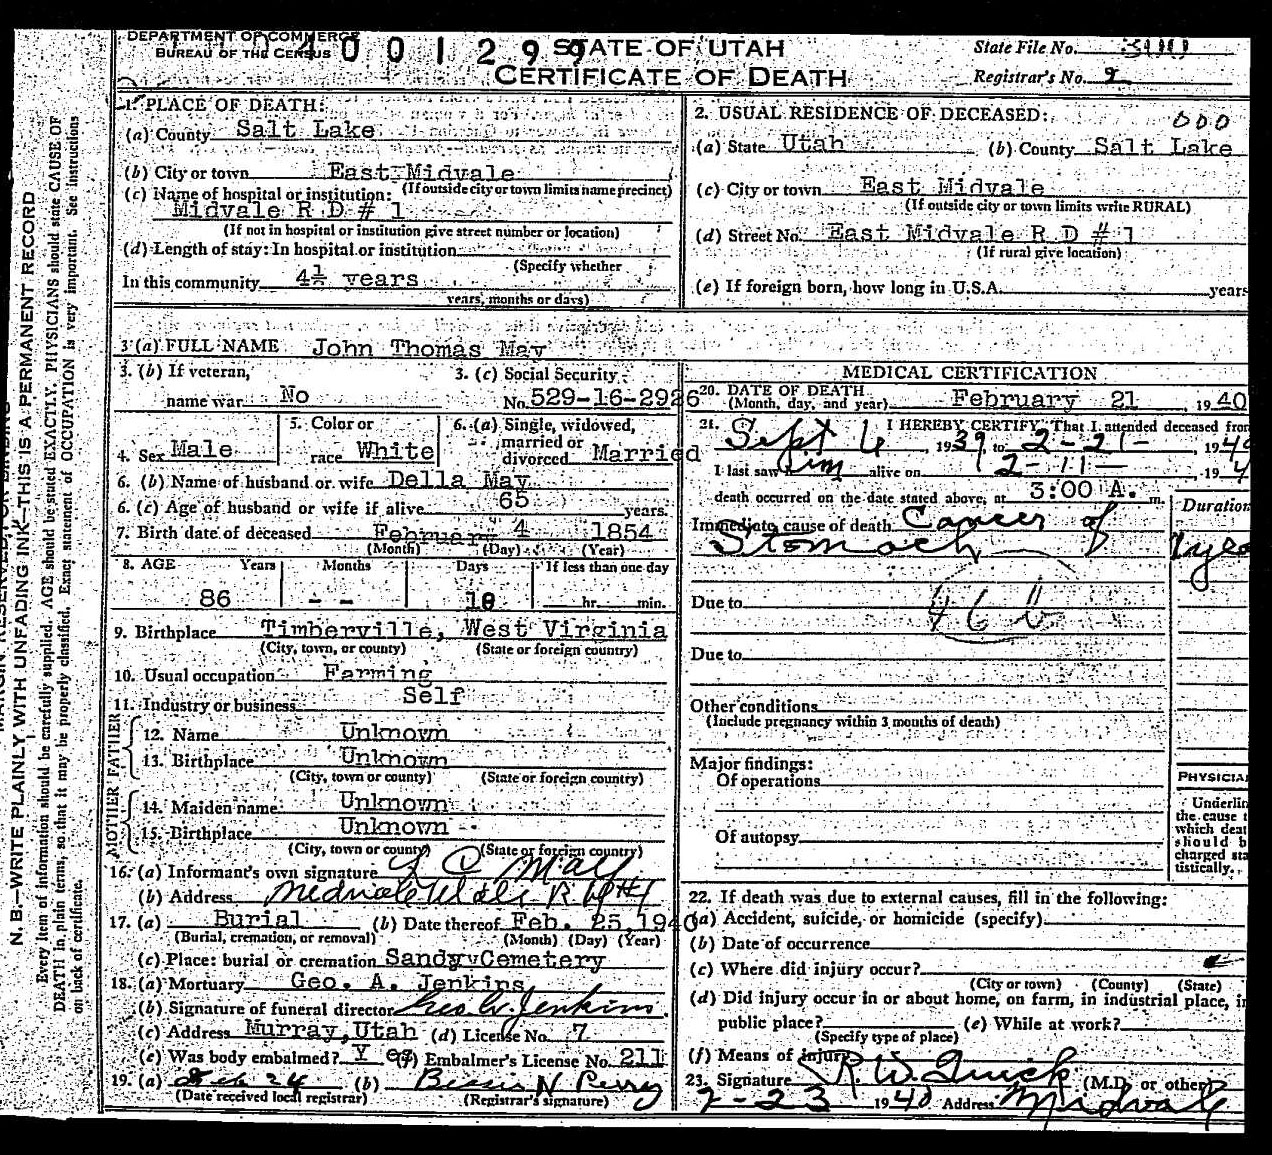 DEPARTMENT OF COMMERCE
BUREAU OF THE CENSUS
400129
STATE OF UTAH
CERTIFICATE OF DEATH
State File No. 300
Registrar's No. 9
1. PLACE OF DEATH:
(a) County Salt Lake
(b) City or town East Midvale
(If outside city or town limits name precinct)
(c) Name of hospital or institution:
Midvale R D # 1
(If not in hospital or institution give street number or location)
(d) Length of stay: In hospital or institution
(Specify whether
In this community 4½ years
years, months or days)
2. USUAL RESIDENCE OF DECEASED:
000
(a) State Utah (b) County Salt Lake
(c) City or town East Midvale
(If outside city or town limits write RURAL)
(d) Street No. East Midvale R D # 1
(If rural give location)
(e) If foreign born, how long in U.S.A. years
3 (a) FULL NAME John Thomas May
3. (b) If veteran,
name war No
3. (c) Social Security
No. 529-16-2926
4. Sex Male
5. Color or
race White
6. (a) Single, widowed,
married or
divorced Married
6. (b) Name of husband or wife Della May
6. (c) Age of husband or wife if alive 65 years.
7. Birth date of deceased February 4 1854
(Month) (Day) (Year)
8. AGE Years Months Days If less than one day
86 - - 18 hr. min.
9. Birthplace Timberville, West Virginia
(City, town, or county) (State or foreign country)
10. Usual occupation Farming
11. Industry or business Self
FATHER
12. Name Unknown
13. Birthplace Unknown
(City, town or county) (State or foreign country)
MOTHER
14. Maiden name Unknown
15. Birthplace Unknown
(City, town or county) (State or foreign country)
16. (a) Informant's own signature L C May
(b) Address Midvale Utah R #1
17. (a) Burial (b) Date thereof Feb. 25, 1940
(Burial, cremation, or removal) (Month) (Day) (Year)
(c) Place: burial or cremation Sandy Cemetery
18. (a) Mortuary Geo. A. Jenkins
(b) Signature of funeral director Geo. A. Jenkins
(c) Address Murray, Utah (d) License No. 7
(e) Was body embalmed? Yes (f) Embalmer's License No. 211
19. (a) Feb 24 (b) Bessie N Perry
(Date received local registrar) (Registrar's signature)
MEDICAL CERTIFICATION
20. DATE OF DEATH
(Month, day, and year) February 21, 1940
21. I HEREBY CERTIFY, That I attended deceased from
Sept 6, 1939, to 2-21-, 1940
I last saw him alive on 2-11-, 194
death occurred on the date stated above, at 3:00 A. m.
Duration
Immediate cause of death Cancer of
Stomach
46 b
Due to
Due to
Other conditions
(Include pregnancy within 3 months of death)
Major findings:
Of operations
Of autopsy
PHYSICIA
Underlin
the cause t
which deat
should b
charged sta
tistically.
22. If death was due to external causes, fill in the following:
(a) Accident, suicide, or homicide (specify)
(b) Date of occurrence
(c) Where did injury occur?
(City or town) (County) (State)
(d) Did injury occur in or about home, on farm, in industrial place, in
public place? (e) While at work?
(Specify type of place)
(f) Means of injury
23. Signature R. W. Quick (M.D. or other)
2-23 1940 Address Midvale
N. B.—WRITE PLAINLY WITH UNFADING INK—THIS IS A PERMANENT RECORD
Every item of information should be carefully supplied. AGE should be stated EXACTLY. PHYSICIANS should state CAUSE OF
DEATH in plain terms, so that it may be properly classified. Exact statement of OCCUPATION is very important. See instructions
on back of certificate.